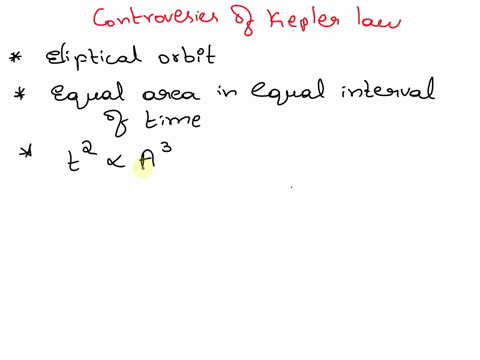 Controvesies of Kepler law
* Eliptical orbit
* Equal area in equal interval
of time
* t² ∝ A³